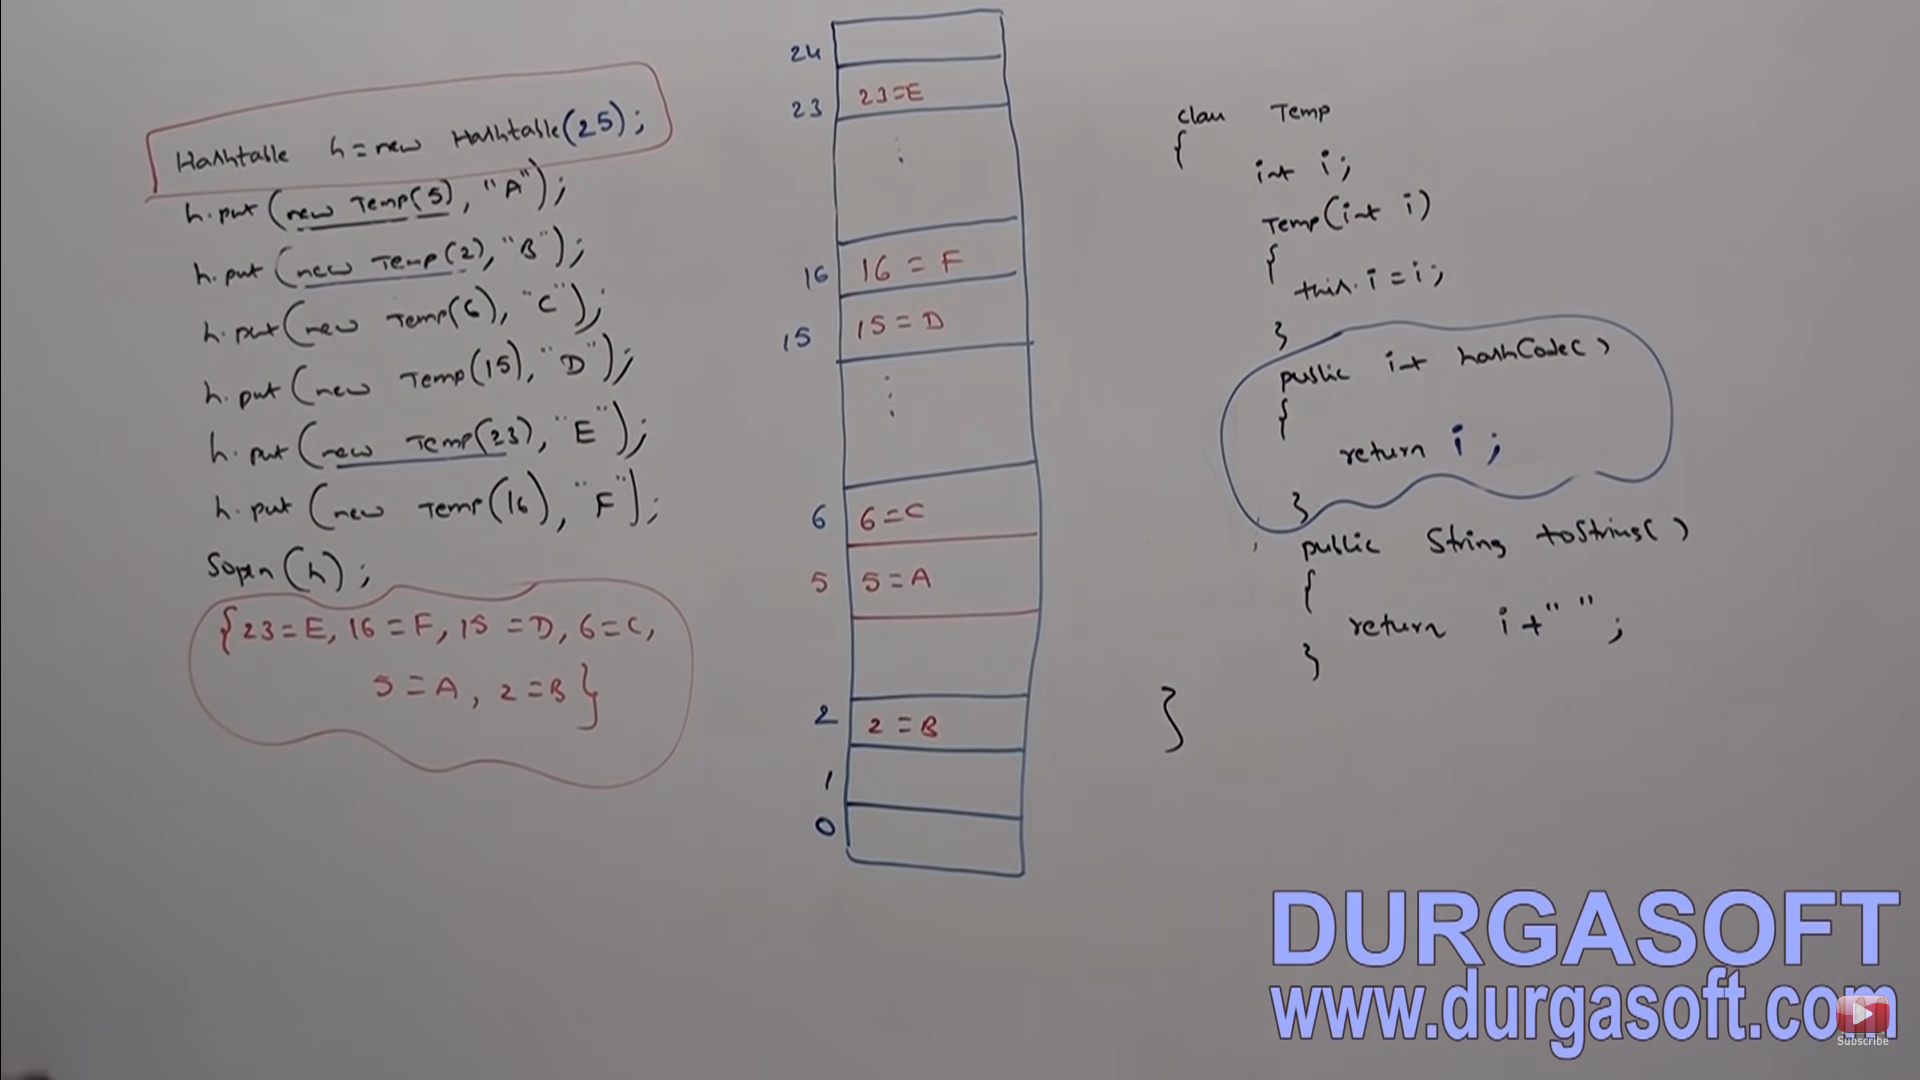 Hashtable h = new Hashtable(25);
h.put(new Temp(5), "A");
h.put(new Temp(2), "B");
h.put(new Temp(6), "C");
h.put(new Temp(15), "D");
h.put(new Temp(23), "E");
h.put(new Temp(16), "F");
Sopln(h);
{23=E, 16=F, 15=D, 6=C,
5=A, 2=B}
24
23 23=E
16 16=F
15 15=D
6 6=C
5 5=A
2 2=B
1
0
class Temp
{
int i;
Temp(int i)
{
this.i = i;
}
public int hashCode()
{
return i;
}
public String toString()
{
return i+" ";
}
}
DURGASOFT
www.durgasoft.com
Subscribe